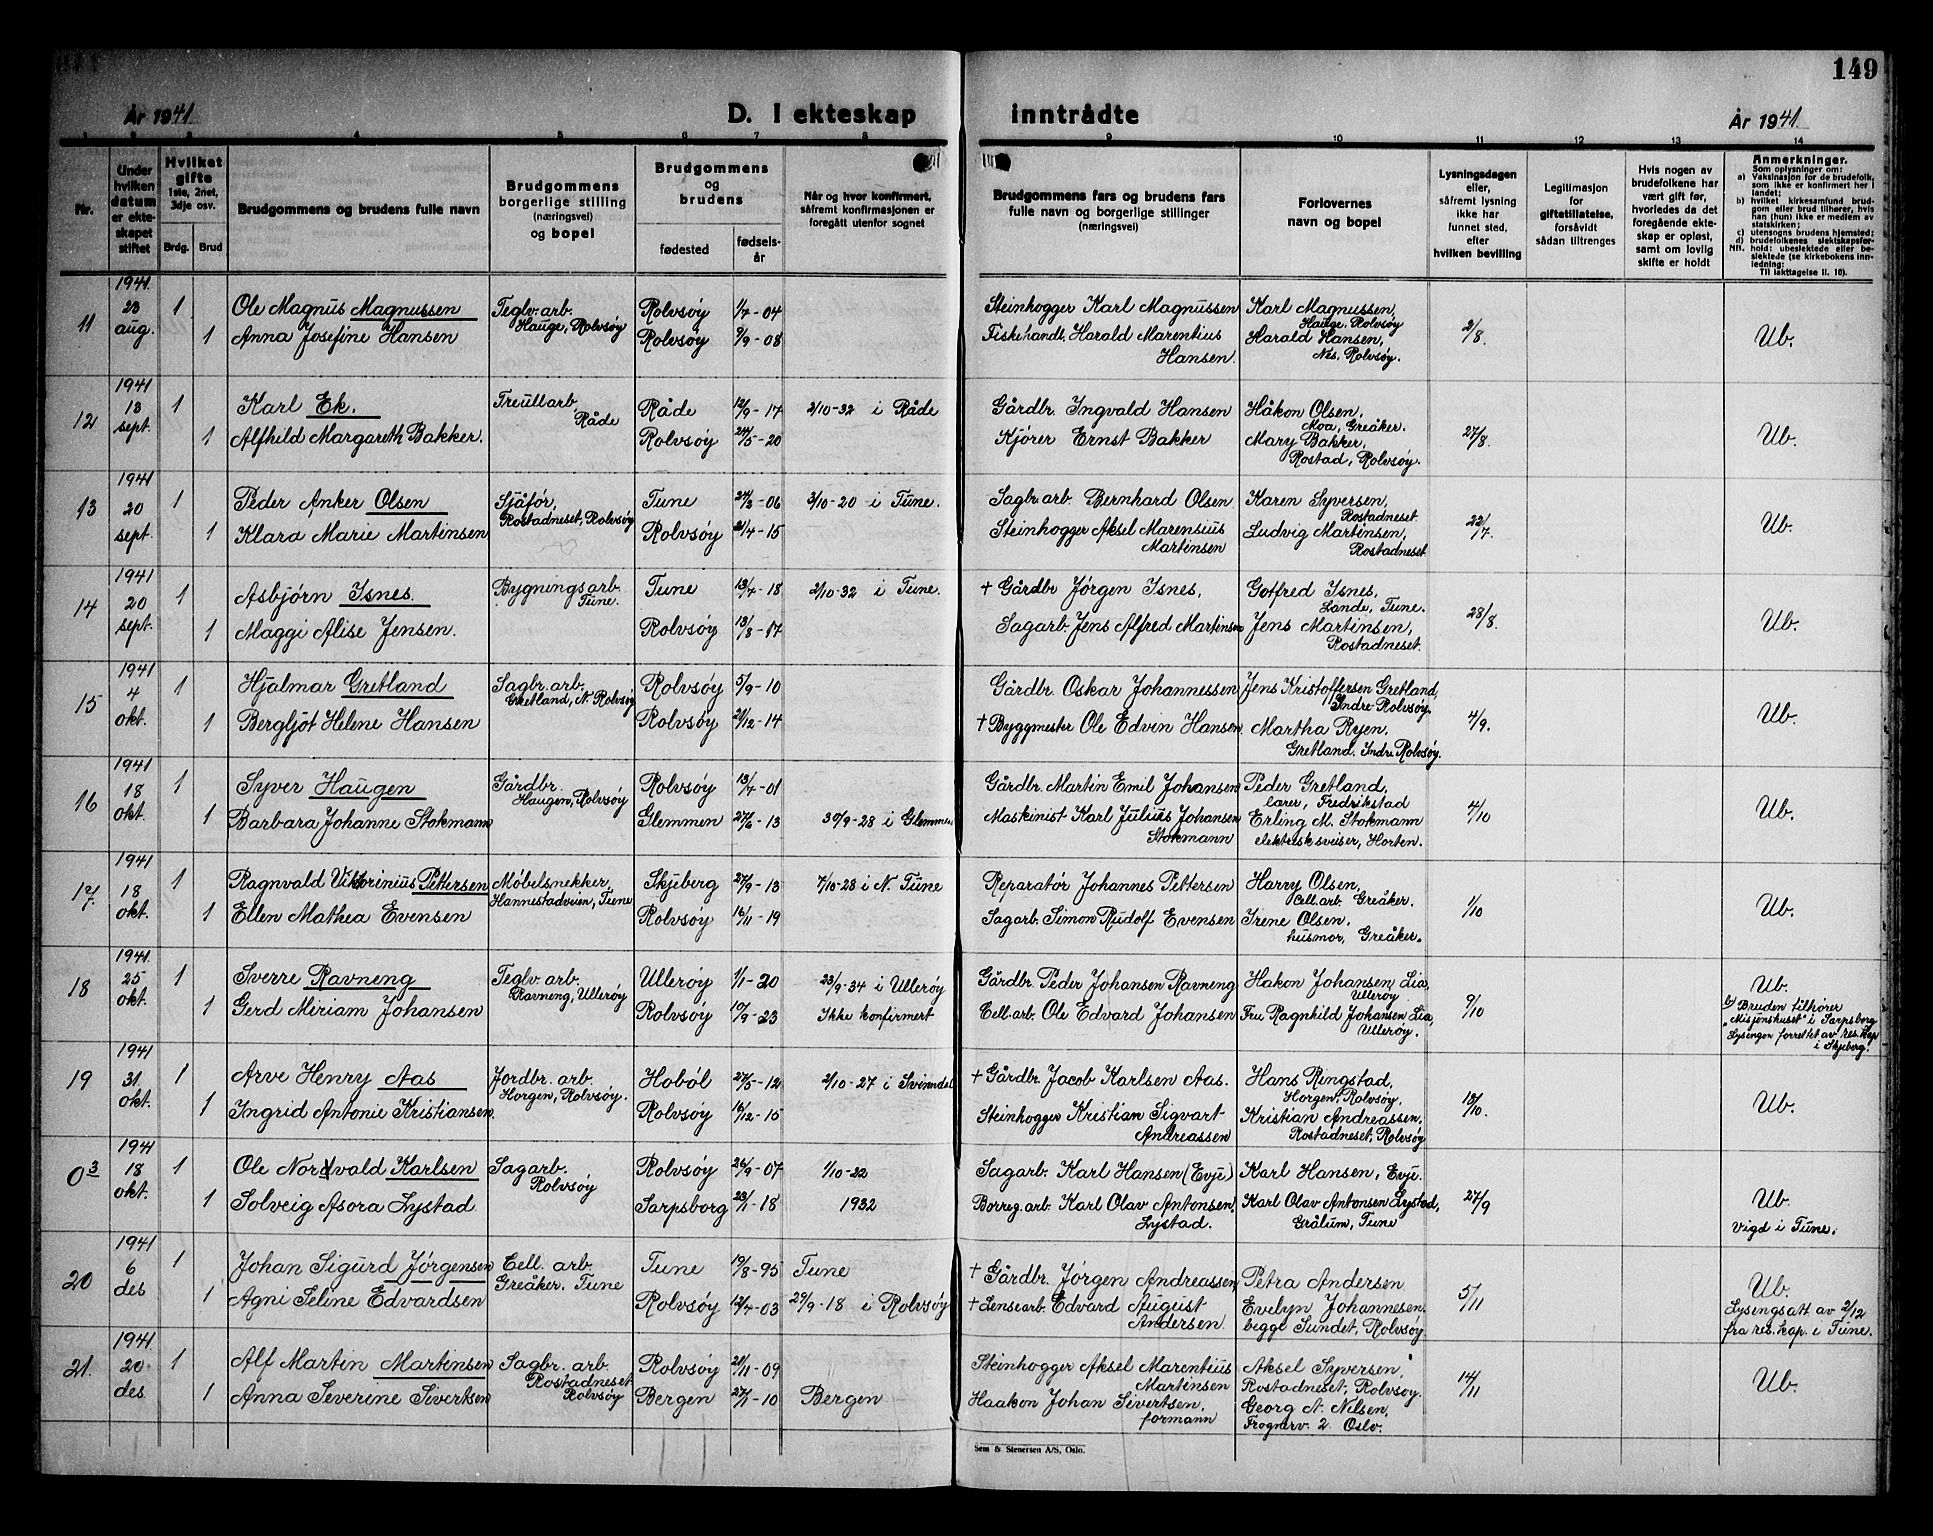 149
År 1941 D. I ekteskap inntrådte År 1941
1 2 3 4 5 6 7 8 9 10 11 12 13 14
Nr.
Under hvilken datum er ekteskapet stiftet
Hvilket gifte 1ste, 2net, 3dje osv.
Brdg. Brud
Brudgommens og brudens fulle navn
Brudgommens borgerlige stilling (næringsvei) og bopel
Brudgommens og brudens
fødested fødselsår
Når og hvor konfirmert, såfremt konfirmasjonen er foregått utenfor sognet
Brudgommens fars og brudens fars fulle navn og borgerlige stillinger (næringsvei)
Forlovernes navn og bopel
Lysningsdagen eller, såfremt lysning ikke har funnet sted, efter hvilken bevilling
Legitimasjon for giftetillatelse, forsåvidt sådan tiltrenges
Hvis nogen av brudefolkene har vært gift før, hvorledes da det foregående ekteskap er opløst, samt om lovlig skifte er holdt
Anmerkninger.
Som oplysningen om:
a) Vaksinasjon for de brudefolk, som ikke er konfirmert her i landet;
b) hvilket kirkesamfund brudgom eller brud tilhører, hvis han (hun) ikke er medlem av statskirken;
c) utensogns brudens hjemsted;
d) brudefolkenes slektskapsforhold: ubeslektede eller beslektede (se kirkebokens innledning;
NB. Til iakttagelse II. 10).
11 1941 23 aug. 1 Ole Magnus Magnussen Teglv. arb. Hauge, Rolvsøy Rolvsøy 1/7-04 Steinhogger Karl Magnussen Karl Magnussen, Hauge, Rolvsøy 2/8. Ub.
1 Anna Josefine Hansen Rolvsøy 9/9-08 Fiskehandl. Harald Marentius Hansen. Harald Hansen, Nes, Rolvsøy.
12 1941 13 sept. 1 Karl Ek. Treullarb Råde Råde 12/9-17 2/10-32 i Råde Gårdbr. Ingvald Hansen Håkon Olsen, Moa, Greåker. 27/8. Ub.
1 Alfhild Margareth Bakker. Rolvsøy 24/5-20 Kjører Ernst Bakker Mary Bakker, Rostad, Rolvsøy.
13 1941 20 sept. 1 Peder Anker Olsen Sjåfør, Rostadneset, Rolvsøy Tune 24/3-06 3/10-20 i Tune. Sagbr. arb. Bernhard Olsen Karen Syversen, Rostadneset. 22/7. Ub.
1 Klara Marie Martinsen Rolvsøy 21/4-15 Steinhogger Aksel Marensius Martinsen Ludvig Martinsen, Rostadneset
14 1941 20 sept. 1 Asbjørn Isnes. Bygningsarb. Tune. Tune 13/4-18 2/10-32 i Tune. † Gårdbr Jørgen Isnes, Gotfred Isnes, Lande, Tune. 28/8. Ub.
1 Maggi Alise Jensen. Rolvsøy 13/8-17 Sagarb. Jens Alfred Martinsen Jens Martinsen, Rostadneset.
15 1941 4 okt. 1 Hjalmar Gretland Sagbr. arb. Gretland, N. Rolvsøy Rolvsøy 5/9-10 Gårdbr. Oskar Johannessen Jens Kristoffersen Gretland, Indre Rolvsøy. 4/9. Ub.
1 Bergljot Helene Hansen Rolvsøy 21/12-14 † Byggmester Ole Edvin Hansen. Martha Ryen. Gretland. Indre Rolvsøy.
16 1941 18 okt. 1 Syver Haugen Gårdbr. Haugen, Rolvsøy Rolvsøy 13/4-01 Gårdbr. Martin Emil Johansen Peder Gretland, lærer, Fredrikstad 4/10 Ub.
1 Barbara Johanne Stokmann Glemmen 27/6-13 30/9-28 i Glemmen Maskinist Karl Julius Johansen Stokmann Erling M. Stokmann elektrisk sveiser, Horten.
17. 1941 18 okt. 1 Ragnvald Viktorinius Pettersen Møbelsnekker, Hannestadveien, Tune Skjeberg 27/9-13 7/10-28 i N. Tune Reparatør Johannes Pettersen Harry Olsen, Cell. arb. Greåker. 1/10 Ub.
1 Ellen Mathea Evensen Rolvsøy 16/11-19 Sagarb. Simon Rudolf Evensen Irene Olsen. husmor, Greåker.
18 1941. 25 okt. 1 Sverre Ravneng Teglv. arb. Ravneng, Ullerøy Ullerøy 1/1-20 23/9-34 i Ullerøy Gårdbr. Peder Johansen Ravneng Hakon Johansen, Lia, Ullerøy 9/10 Ub.
1 Gerd Miriam Johansen Rolvsøy 10/9-23 Ikke konfirmert Cell. arb. Ole Edvard Johansen Fru Ragnhild Johansen Lia, Ullerøy. b) Bruden tilhører „Misjonshuset" i Sarpsborg Lysingen forrettet av res. kap i Skjeberg.
19 1941 31. okt. 1 Arve Henry Aas Jordbr. arb. Horgen, Rolvsøy. Hobøl 27/5-12 2/10-27 i Svinndal † Gårdbr. Jacob Karlsen Aas. Hans Ringstad, Horgen, Rolvsøy, 13/10. Ub.
1 Ingrid Antonie Kristiansen. Rolvsøy 16/12-15 Steinhogger Kristian Sigvart Andreassen Kristian Andreassen, Rostadneset, Rolvsøy
0 3 1941 18 okt. 1 Ole Nordvald Karlsen Sagarb. Rolvsøy Rolvsøy 26/9-07 1/10-22 Sagarb. Karl Hansen (Evje) Karl Hansen, Evje. 27/9 Ub.
1 Solveig Asora Lystad. Sarpsborg 23/1-18 1932 Borreg. arb. Karl Olav Antonsen, Lystad. Karl Olav Antonsen Lystad, Grålum, Tune Vigd i Tune.
20 1941 6 des 1 Johan Sigurd Jørgensen Cell. arb. Greåker. Tune Tune 19/8-95 Tune † Gårdbr. Jørgen Andreassen, Petra Andersen 5/11 Ub.
1 Agni Seline Edvardsen Rolvsøy 12/4-03 29/9-18 i Rolvsøy † Lensearb. Edvard August Andersen. Evelyn Johannesen. begge Sundet, Rolvsøy Lysingsatt. av 2/12 fra res. kap. i Tune.
21. 1941 20 des 1 Alf Martin Martinsen Sagbr. arb. Rostadneset Rolvsøy Rolvsøy 21/11-09 Steinhogger Aksel Marentius Martinsen Aksel Syversen, Rostadneset, Rolvsøy. 14/11 Ub.
1 Anna Severine Sivertsen Bergen 27/1-10 Bergen Haakon Johan Sivertsen, formann Georg A. Nilsen, Frognerv. 2. Oslo.
Sem & Stenersen A/S, Oslo.